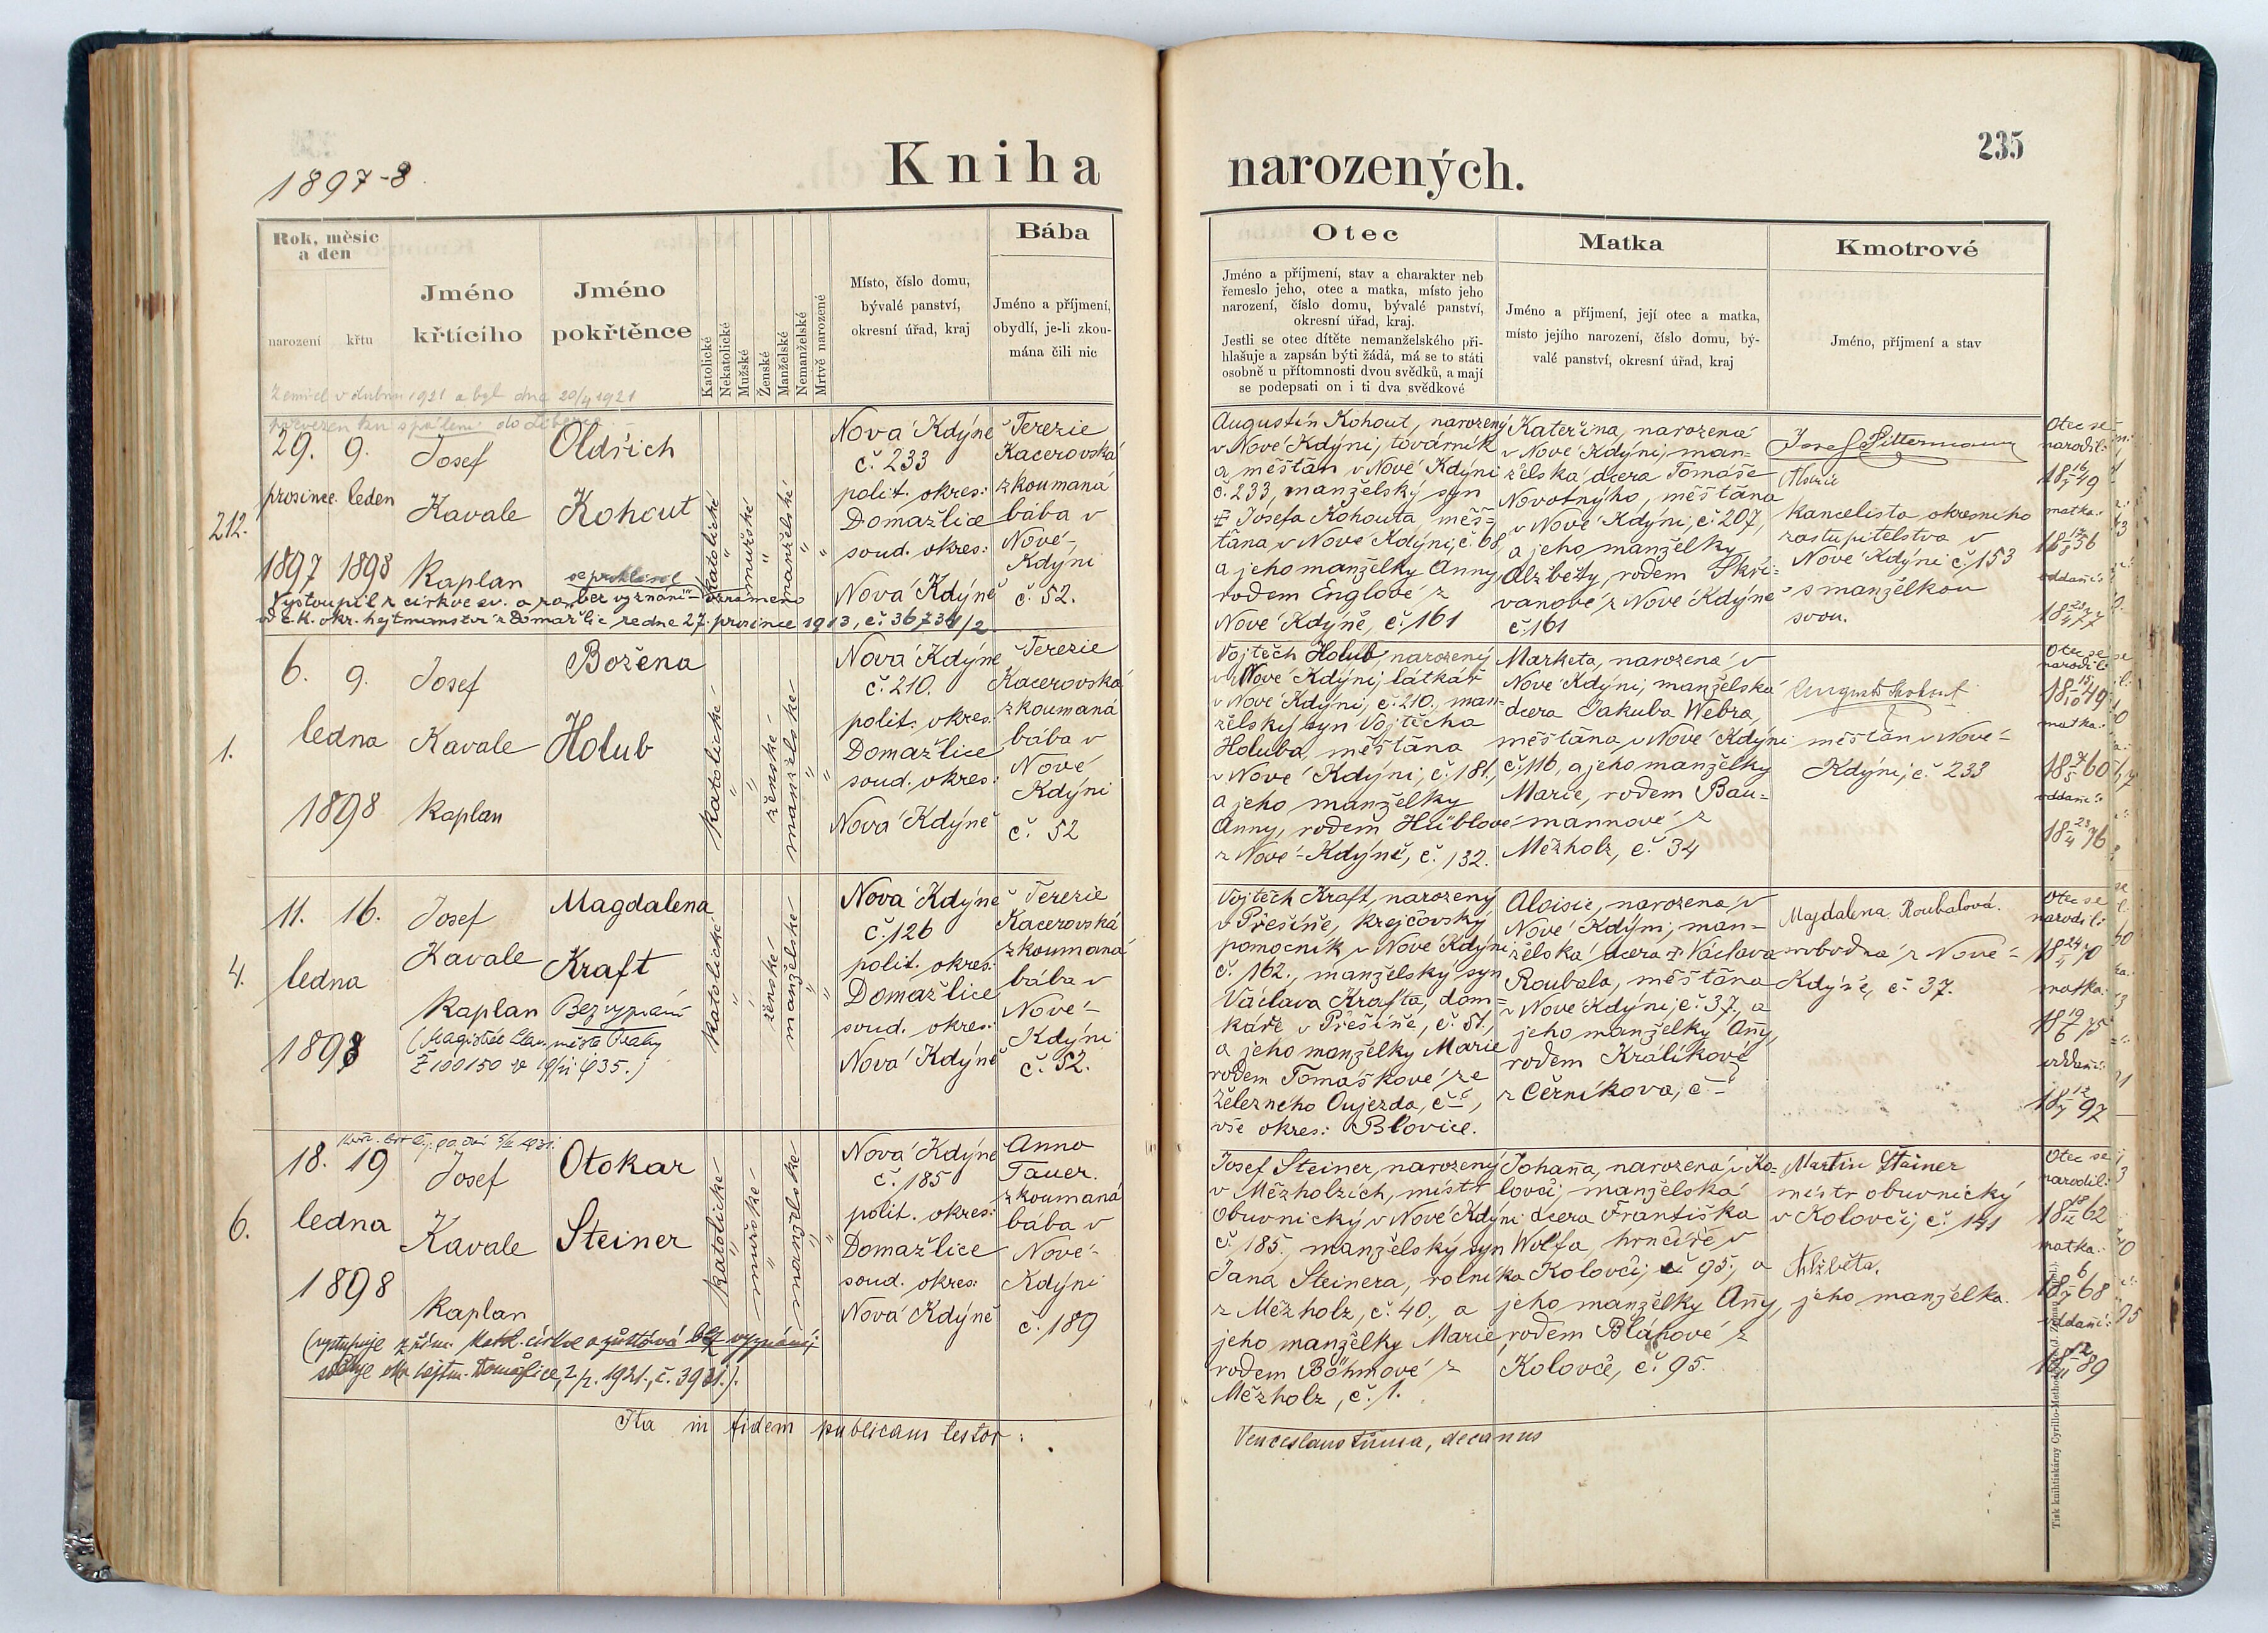 1897-8.
Kniha
narozených.
235
Rok, měsíc
a den
narození
křtu
Jméno
křtícího
Jméno
pokřtěnce
Katolické
Nekatolické
Mužské
Ženské
Manželské
Nemanželské
Mrtvě narozené
Místo, číslo domu,
bývalé panství,
okresní úřad, kraj
Bába
Jméno a příjmení,
obydlí, je-li zkou-
mána čili nic
Otec
Jméno a příjmení, stav a charakter neb
řemeslo jeho, otec a matka, místo jeho
narození, číslo domu, bývalé panství,
okresní úřad, kraj.
Jestli se otec dítěte nemanželského při-
hlašuje a zapsán býti žádá, má se to státi
osobně u přítomnosti dvou svědků, a mají
se podepsati on i ti dva svědkové
Matka
Jméno a příjmení, její otec a matka,
místo jejího narození, číslo domu, bý-
valé panství, okresní úřad, kraj
Kmotrové
Jméno, příjmení a stav
Zemřel v dubnu 1921 a byl dne 20/4 1921
převezen ku spálení do Liberce
212.
29. 9.
prosince leden
1897 1898
Josef
Kavale
Kaplan
Oldřich
Kohout
katolické
mužské
manželské
Nová Kdýně
č. 233
polit. okres:
Domažlice
soud. okres:
Nová Kdýně
Terezie
Kacerovská
zkoumaná
bába v
Nové-
Kdýni
č. 52.
Vystoupil z církve
od c.k. okr. hejtmanství z Domažlic ze dne 27. prosince 1913, č. 36734/2
Augustin Kohout, narozený
v Nové Kdýni, továrník
a měšťan v Nové Kdýni
č. 233, manželský syn
Josefa Kohouta, měš-
ťana v Nové Kdýni, č. 68,
a jeho manželky Anny,
rodem Englové z
Nové Kdýně, č. 161
Kateřina, narozená
v Nové Kdýni, man-
želská dcera Tomáše
Novotnýho, měšťana
v Nové Kdýni, č. 207,
a jeho manželky
Alžběty, rodem Skři-
vanové z Nové Kdýně
č. 161
Josef Pittermann
kancelista okresního
zastupitelstva v
Nové Kdýni č. 153
s manželkou
svou.
Otec se
narodil:
18 16/7 49
matka:
oddaní:
18 23/4 77
1.
6. 9.
ledna
1898
Josef
Kavale
Kaplan
Božena
Holub
katolické
ženské
manželské
Nová Kdýně
č. 210.
polit. okres.
Domažlice
soud. okres:
Nová Kdýně
Terezie
Kacerovská
zkoumaná
bába v
Nové
Kdýni
č. 52
Vojtěch Holub, narozený
v Nové Kdýni, látkář
v Nové Kdýni, č. 210., man-
želský syn Vojtěcha
Holuba, měšťana
v Nové Kdýni, č. 181,
a jeho manželky
Anny, rodem Hüblové
z Nové-Kdýně, č. 132.
Marketa, narozená v
Nové Kdýni, manželská
dcera Jakuba Webra,
měšťana v Nové Kdýni
č. 116, a jeho manželky
Marie, rodem Bau-
mannové z
Mežholz, č. 34
August Kohout
měšťan v Nové-
Kdýni, č. 233
Otec se
narodil:
18 15/10 49
matka:
18 7/5 60
oddaní:
18 23/4 76
4.
11. 16.
ledna
1898
Josef
Kavale
Kaplan
Magdalena
Kraft
Bez vyznání
(Magistrát hlav. města Prahy
katolické
ženské
manželské
Nová Kdýně
č. 126
polit. okres:
Domažlice
soud. okres:
Nová Kdýně
Terezie
Kacerovská
zkoumaná
bába v
Nové-
Kdýni
č. 52.
Vojtěch Kraft, narozený
v Přešíně, krejčovský
pomocník v Nové Kdýni
č. 162., manželský syn
Václava Krafta, dom-
káře v Přešíně, č. 51,
a jeho manželky Marie
rodem Tomáškové ze
Železného Oujezda, č –,
vše okres: Blovice.
Aloisie, narozená v
Nové Kdýni, man-
želská dcera Václava
Roubala, měšťana
v Nové Kdýni, č. 37., a
jeho manželky Anny,
rodem Králíkové
z Černíkova, č –
Magdalena Roubalová.
svobodná z Nové-
Kdýně, č. 37.
Otec se
narodil:
18 24/4 70
matka:
18 19/6 75
oddaní:
18 12/7 97
6.
18. 19
ledna
1898
Josef
Kavale
Kaplan
Otokar
Steiner
katolické
mužské
manželské
Nová Kdýně
č. 185
polit. okres:
Domažlice
soud. okres:
Nová Kdýně
Anna
Tauer.
zkoumaná
bába v
Nové-
Kdýni
č. 189
(vystupuje z řím. katol. církve a zůstává bez vyznání;
Domažlice, 2/2. 1921., č. 3931.).
Josef Steiner, narozený
v Mežholzích, mistr
obuvnický v Nové Kdýni
č. 185., manželský syn
Jana Steinera, rolníka
z Mežholz, č. 40., a
jeho manželky Marie,
rodem Böhmové z
Mežholz, č. 1.
Johanna, narozená v Ko-
lovči, manželská
dcera Františka
Wolfa, hrnčíře v
Kolovči, č. 95., a
jeho manželky Anny,
rodem Bláhové z
Kolovče, č. 95.
Martin Steiner
mistr obuvnický
v Kolovči, č. 141
Alžběta,
jeho manželka.
Otec se
narodil:
18 18/12 62
matka:
18 6/7 68
oddaní:
18 12/11 89
Ita in fidem publicam testor:
Venceslaus Tůma, decanus